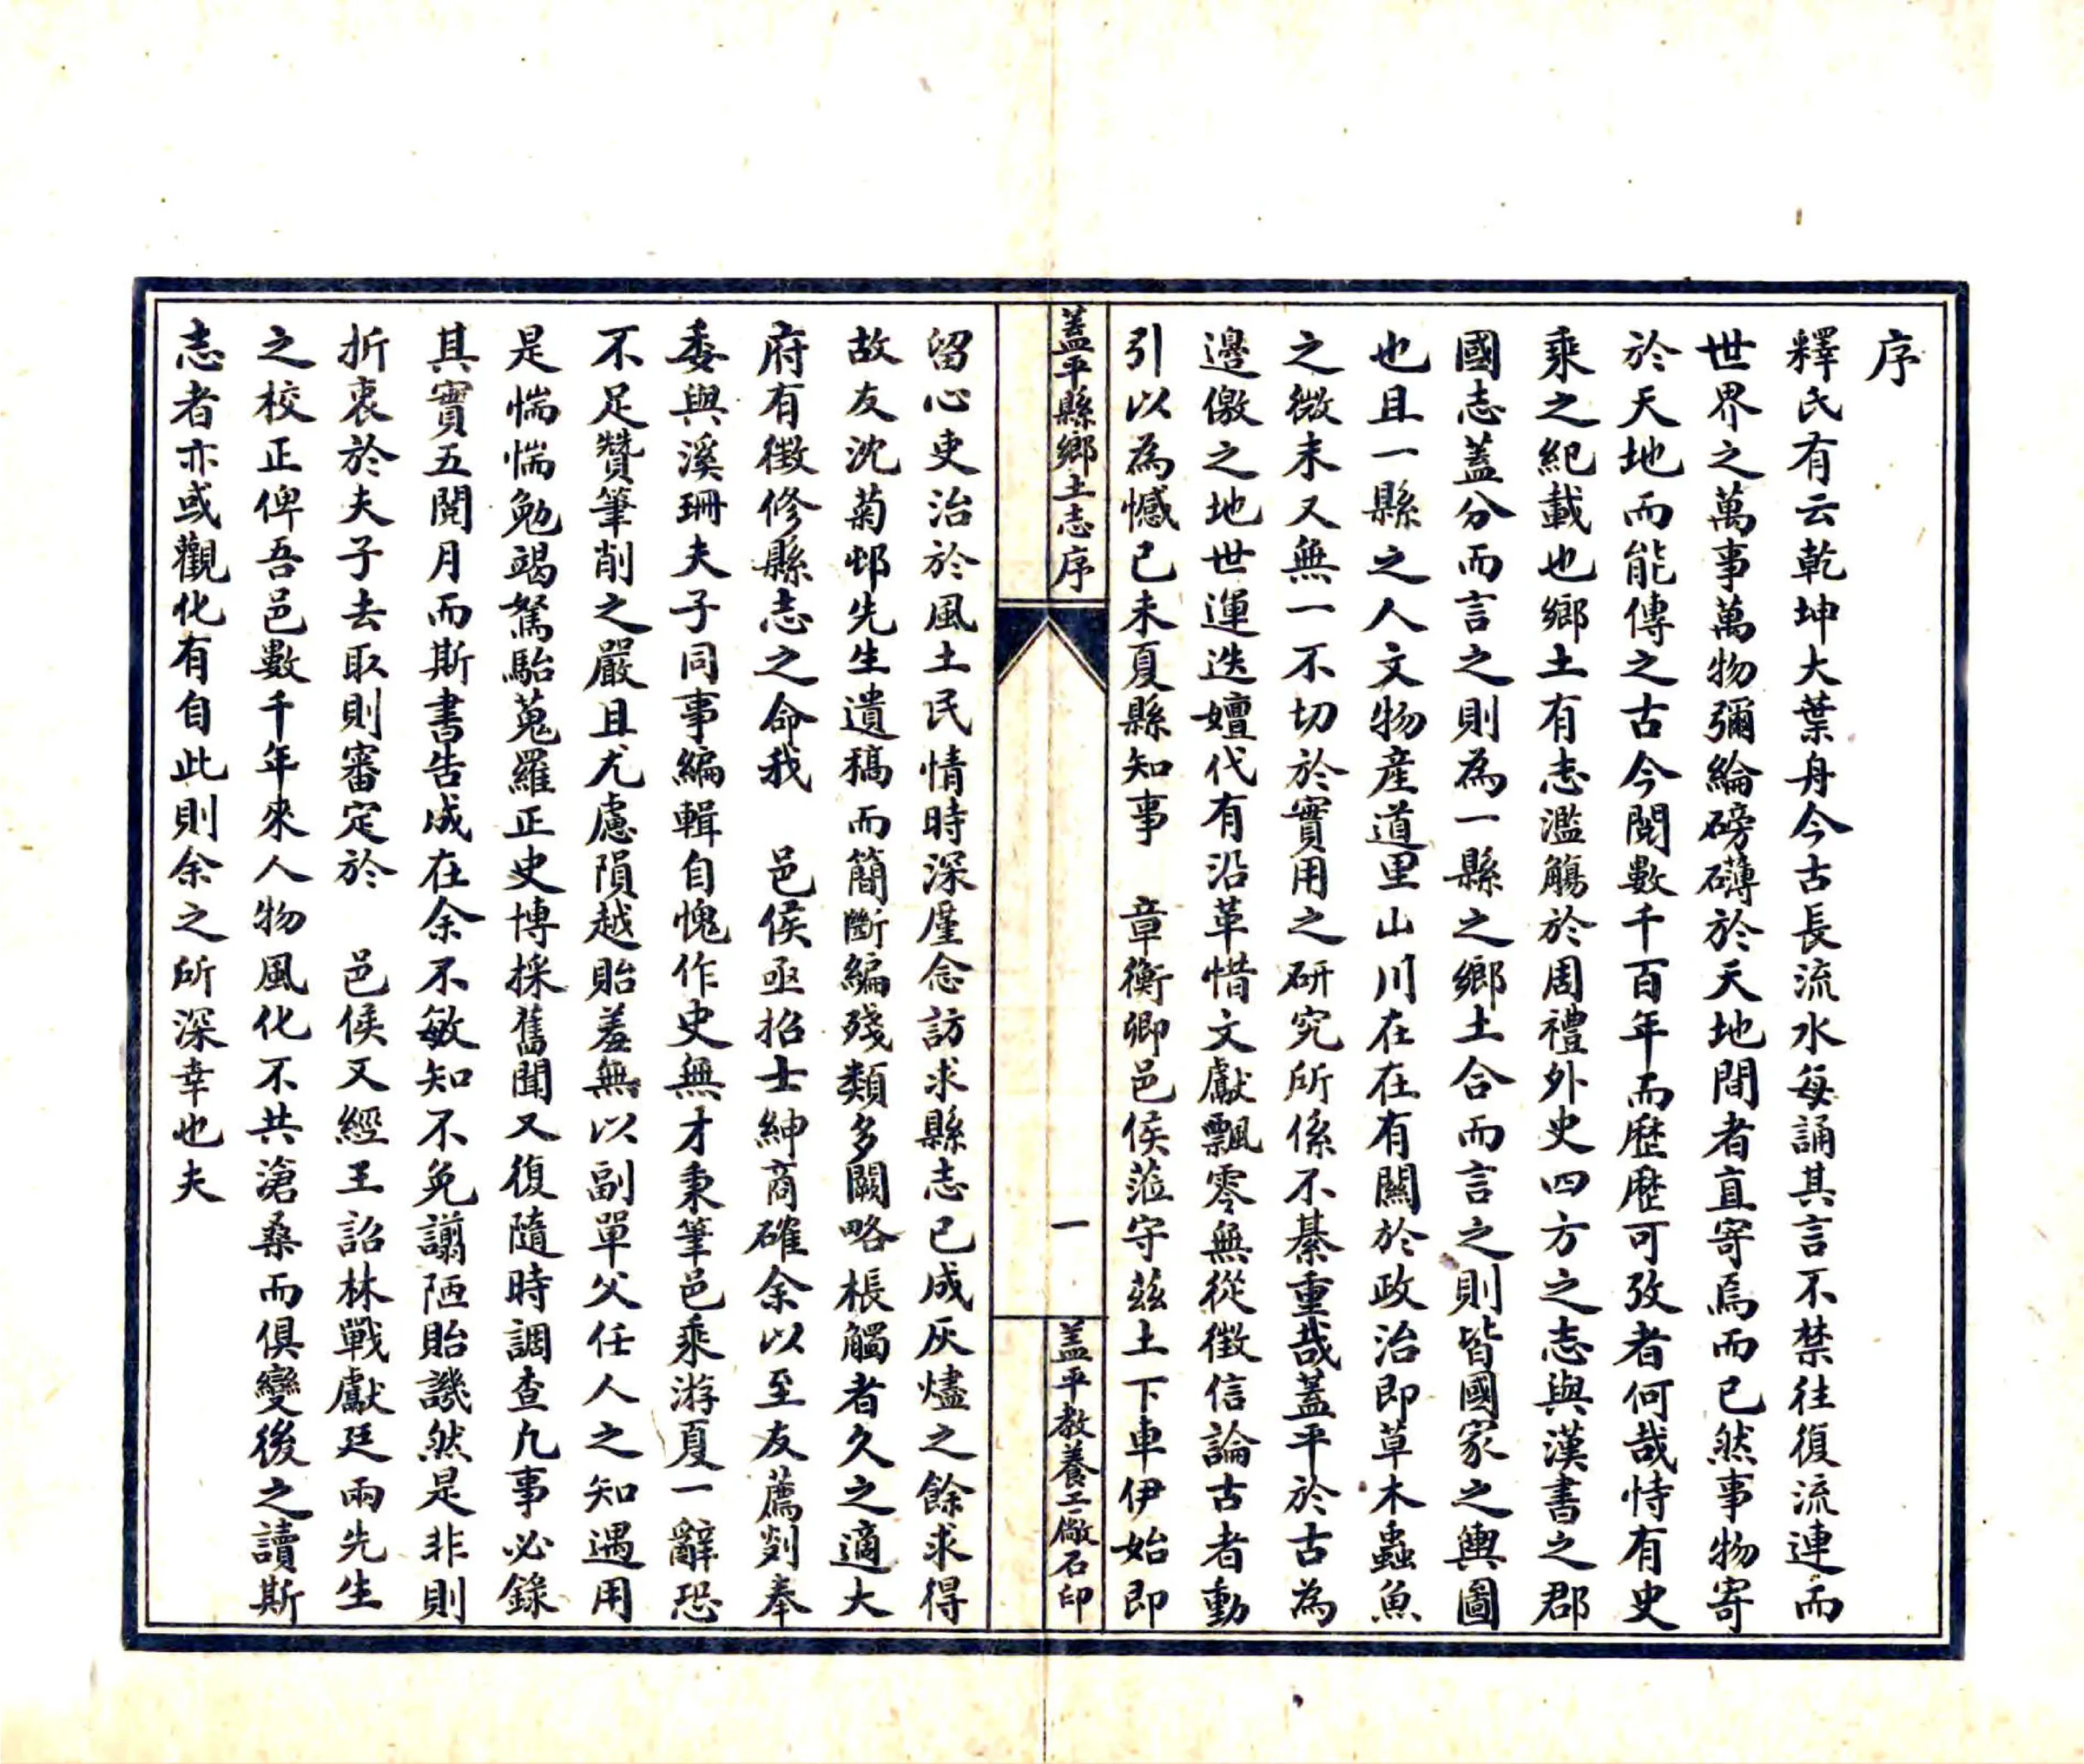 序
釋氏有云乾坤大葉舟今古長流水每誦其言不禁往復流連而
世界之萬事萬物彌綸磅礴於天地間者直寄焉而已然事物寄
於天地而能傳之古今閱數千百年而歷歷可攷者何哉恃有史
乘之紀載也鄉土有志濫觴於周禮外史四方之志與漢書之郡
國志蓋分而言之則為一縣之鄉土合而言之則皆國家之輿圖
也且一縣之人文物產道里山川在在有關於政治即草木蟲魚
之微末又無一不切於實用之研究所係不綦重哉蓋平於古為
邊儌之地世運迭嬗代有沿革惜文獻飄零無從徵信論古者動
引以為憾已未夏縣知事 章衡卿邑侯蒞守茲土下車伊始即
蓋平縣鄉土志序
一
盖平教養工廠石印
留心吏治於風土民情時深廑念訪求縣志已成灰燼之餘求得
故友沈菊邨先生遺稿而簡斷編殘類多闕略棖觸者久之適大
府有徵修縣志之命我 邑侯亟招士紳商確余以至友薦剡奉
委與溪珊夫子同事編輯自愧作史無才秉筆邑乘游夏一辭恐
不足贊筆削之嚴且尤慮隕越貽羞無以副單父任人之知遇用
是惴惴勉竭駑駘蒐羅正史博採舊聞又復隨時調查凡事必錄
其實五閱月而斯書告成在余不敏知不免謭陋貽譏然是非則
折衷於夫子去取則審定於 邑侯又經王詔林戰獻廷兩先生
之校正俾吾邑數千年來人物風化不共滄桑而俱變後之讀斯
志者亦或觀化有自此則余之所深幸也夫